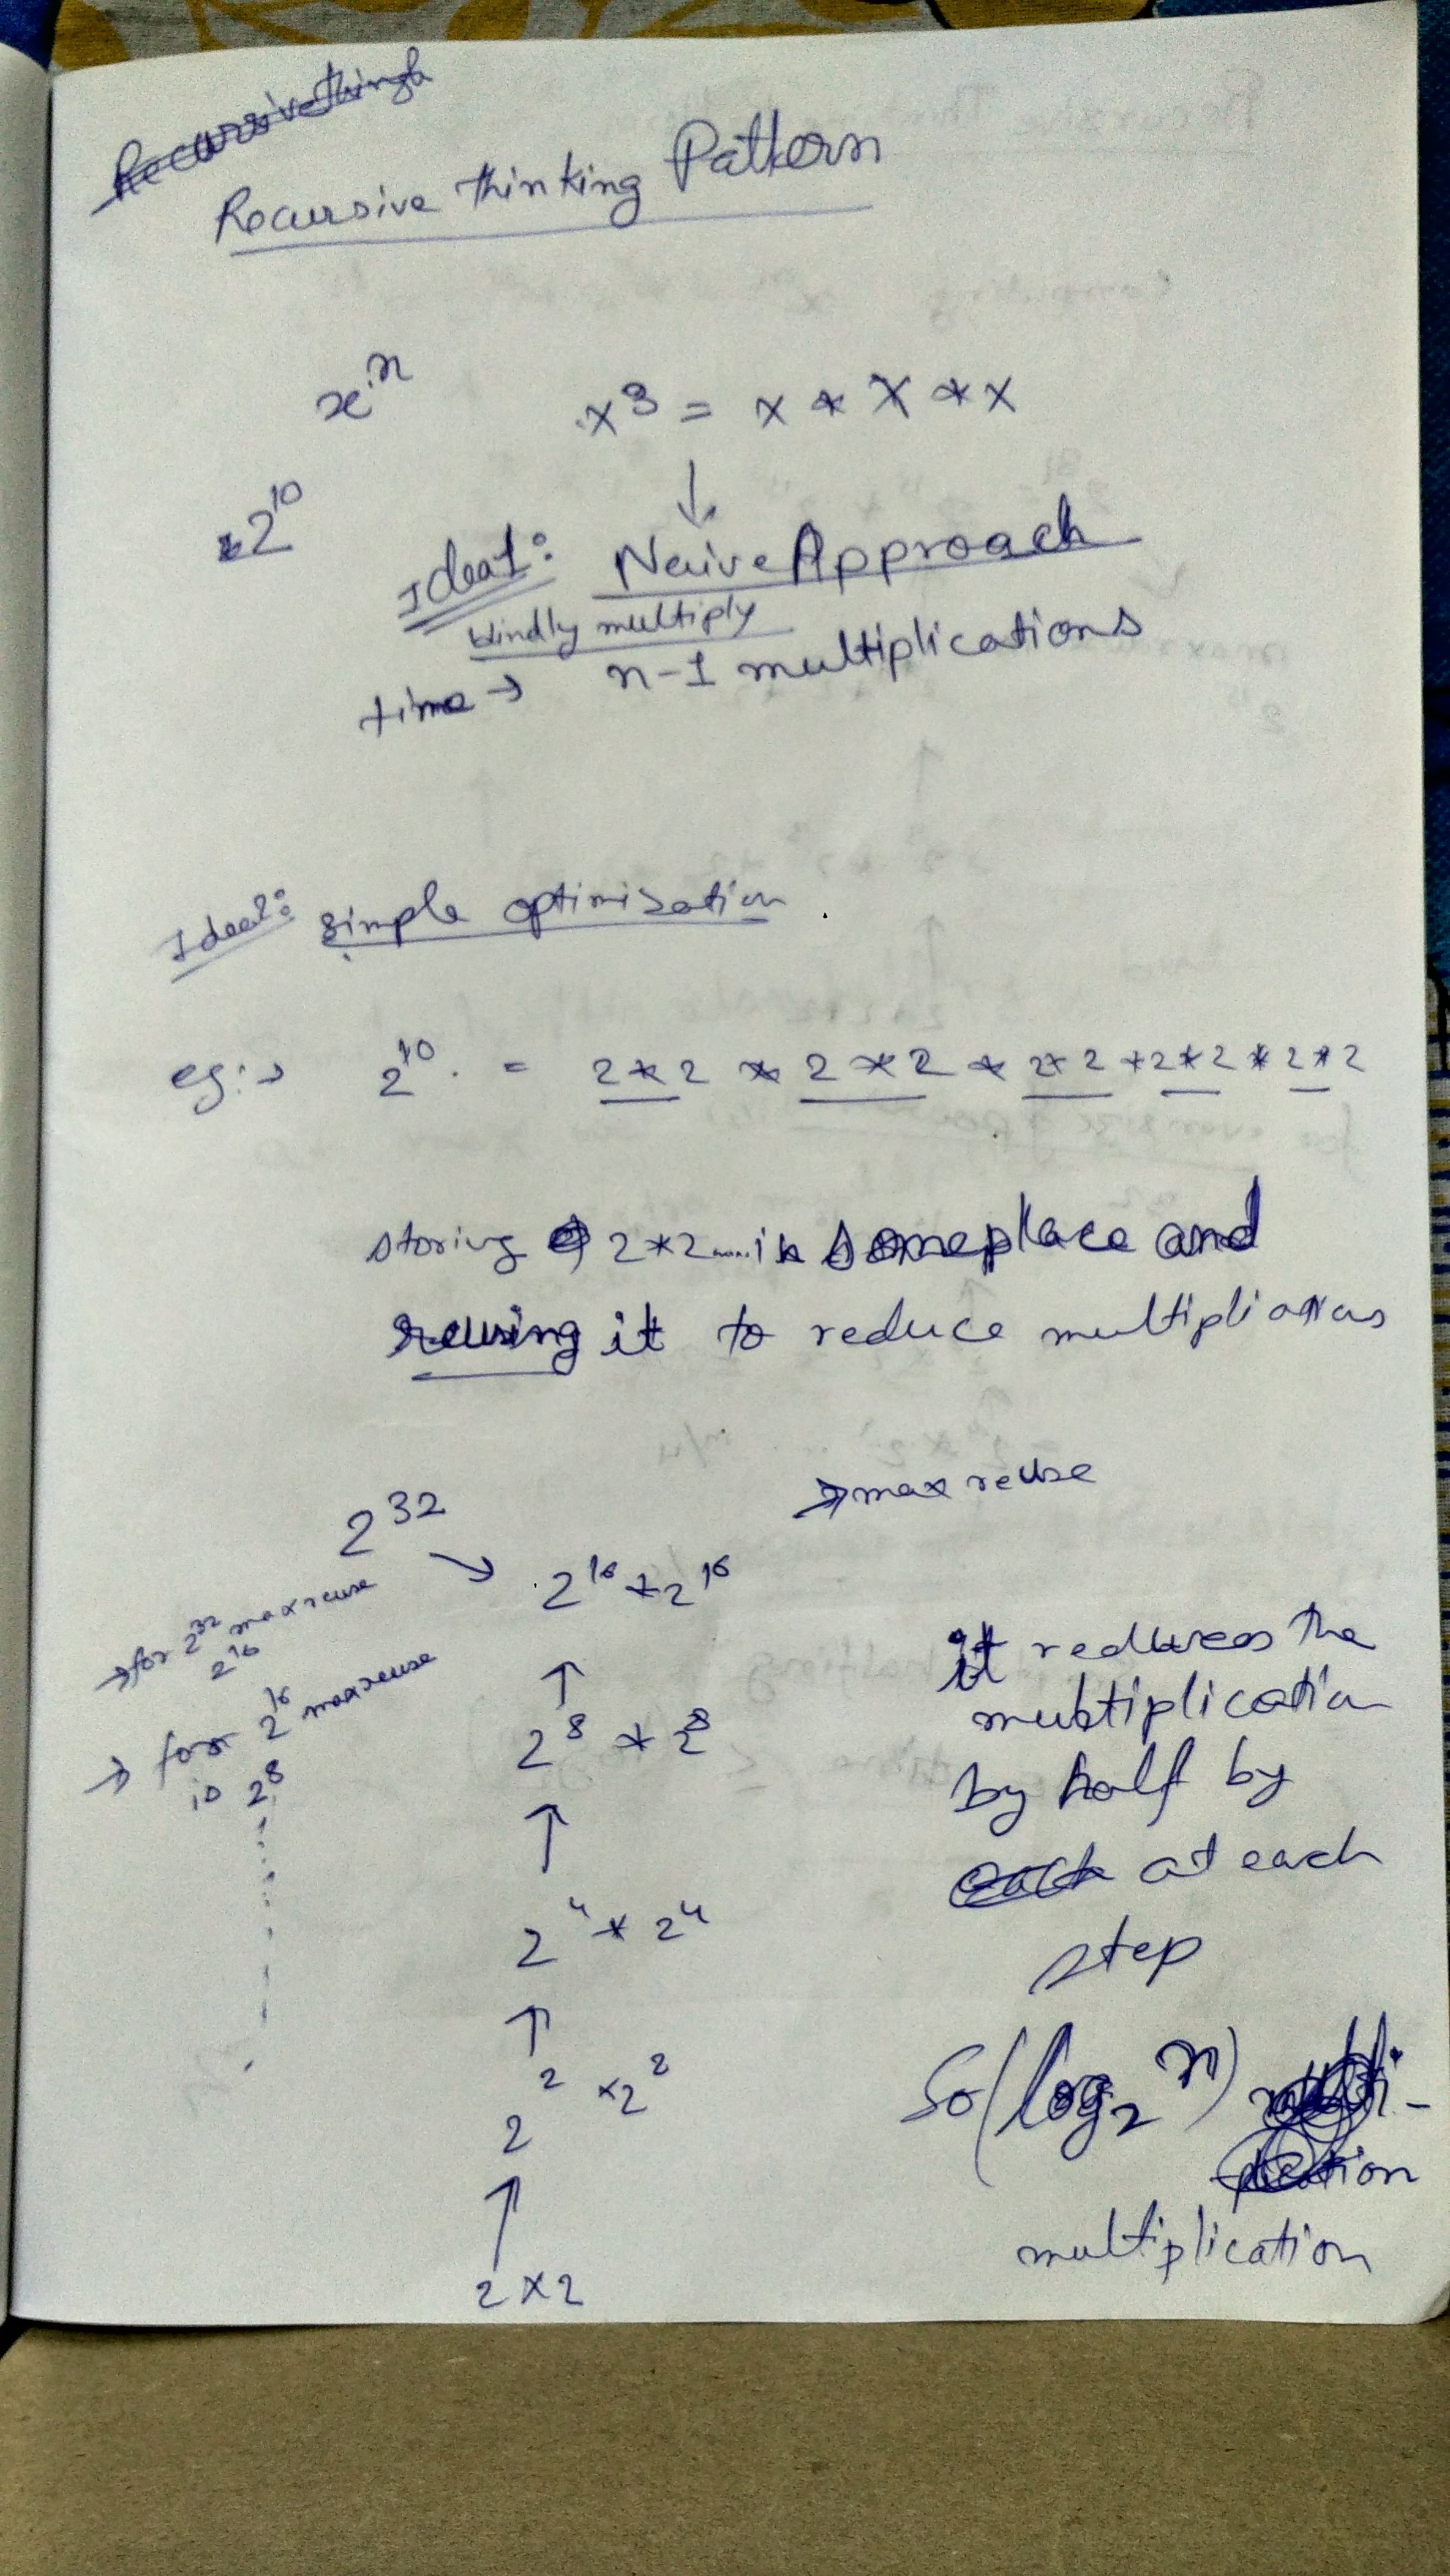 Recursive thinking Pattern
xⁿ x³ = x * x * x
2¹⁰
↓
Idea1: Naive Approach
blindly multiply
time → n-1 multiplications
Idea2: simple optimisation
eg:→ 2¹⁰ = 2*2 * 2*2 * 2*2 * 2*2 * 2*2
storing 2*2.....in someplace and
reusing it to reduce
→ max reuse
2³²
↘ 2¹⁶ * 2¹⁶
→ for 2³² max reuse
2¹⁶
↑
2⁸ * 2⁸
→ for 2¹⁶ max reuse
is 2⁸
↑
2⁴ * 2⁴
↑
2² × 2²
↑
2 × 2
it reduces the
multiplication
by half by
at each
step
So (log₂ n)
multiplication